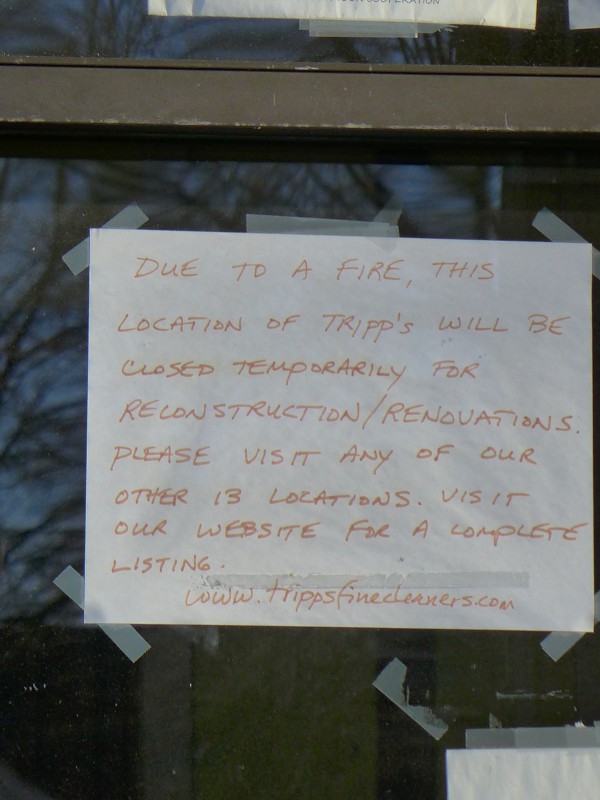 DUE TO A FIRE, THIS
LOCATION OF TRIPP'S WILL BE
CLOSED TEMPORARILY FOR
RECONSTRUCTION/RENOVATIONS.
PLEASE VISIT ANY OF OUR
OTHER 13 LOCATIONS. VISIT
OUR WEBSITE FOR A COMPLETE
LISTING.
www.trippsfinecleaners.com